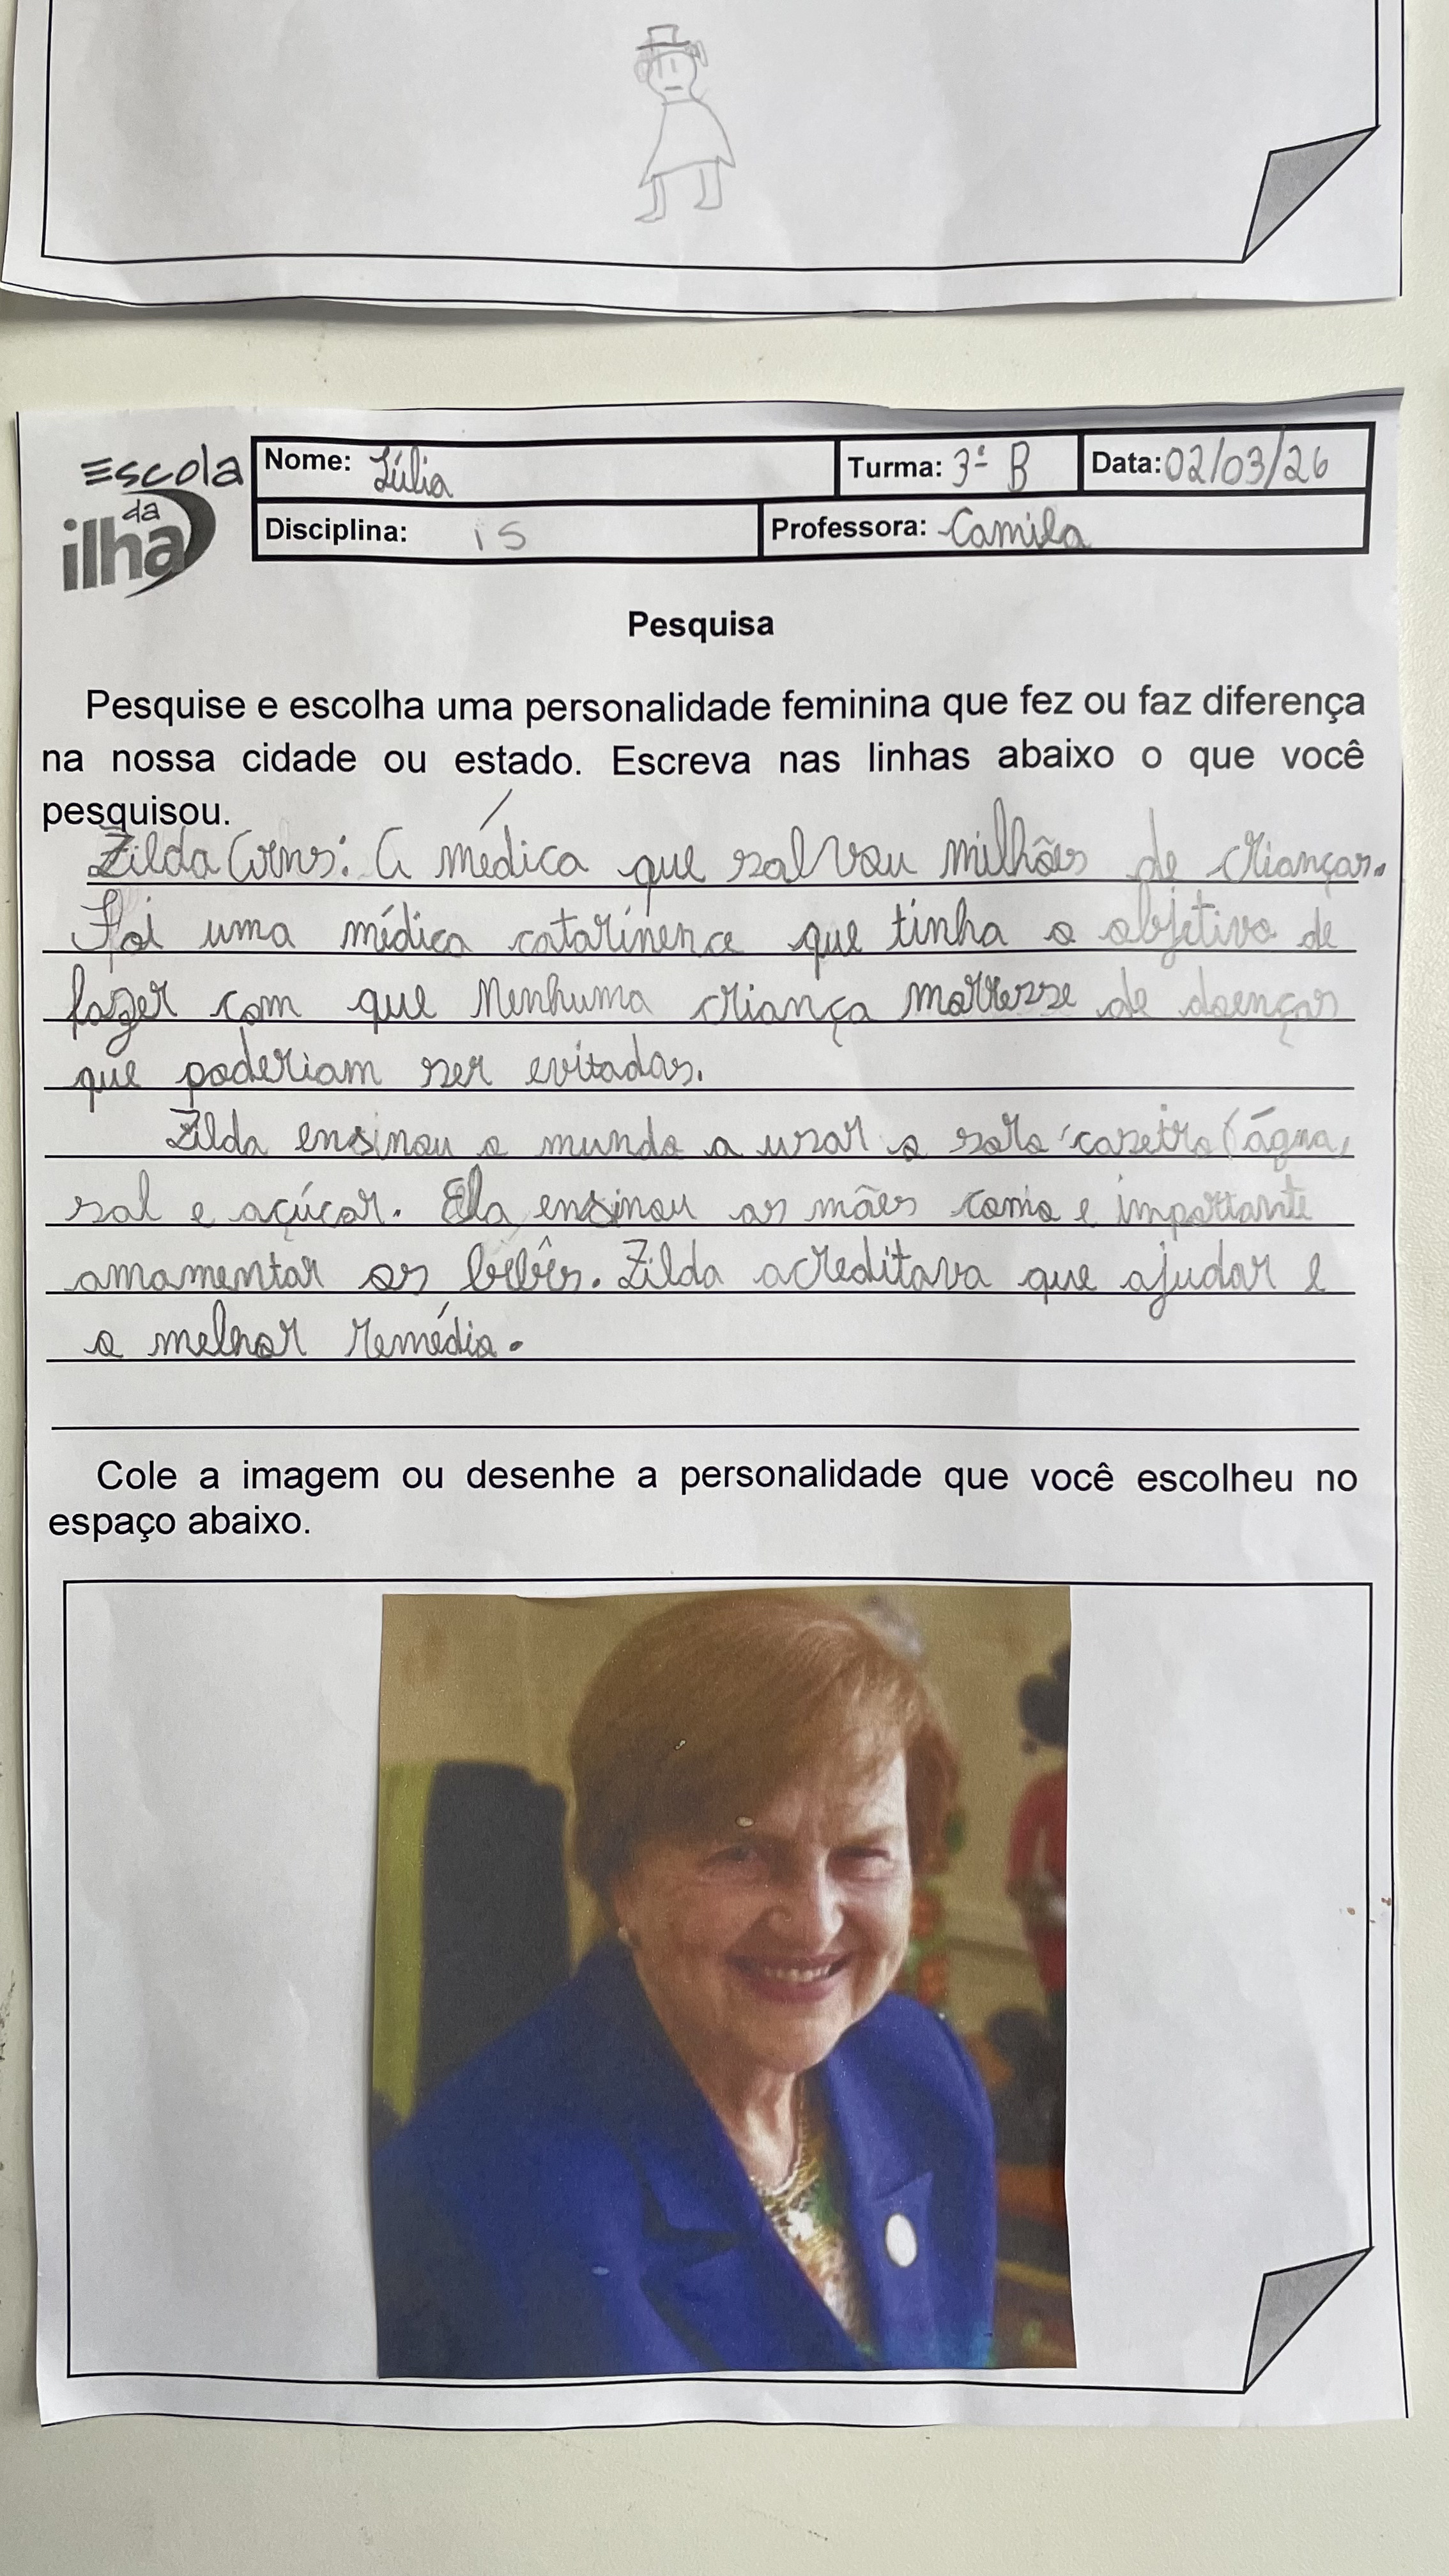 Escola
da
ilha
Nome: Júlia
Turma: 3ª B
Data: 02/03/26
Disciplina: is
Professora: Camila
Pesquisa
Pesquise e escolha uma personalidade feminina que fez ou faz diferença
na nossa cidade ou estado. Escreva nas linhas abaixo o que você
pesquisou.
Zilda Arns: A médica que salvou milhões de crianças.
Foi uma médica catarinence que tinha o objetivo de
fazer com que Nenhuma criança morresse de doenças
que poderiam ser evitadas.
Zilda ensinou o mundo a usar o soro caseiro (água,
sal e açúcar. Ela ensinou as mães como e importante
amamentar os bebês. Zilda acreditava que ajudar e
o melhor remédio.
Cole a imagem ou desenhe a personalidade que você escolheu no
espaço abaixo.